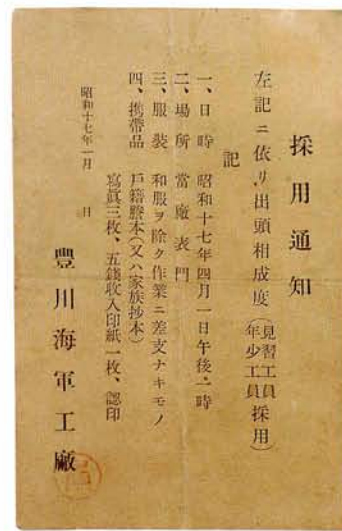 採用通知
左記ニ依リ出頭相成度(見習工員年少工員採用)
記
一、日時 昭和十七年四月一日午後一時
二、場所 當廠表門
三、服裝 和服ヲ除ク作業ニ差支ナキモノ
四、携帶品 戶籍謄本(又ハ家族抄本)
寫眞三枚、五錢收入印紙一枚、認印
昭和十七年一月 日
豐川海軍工廠